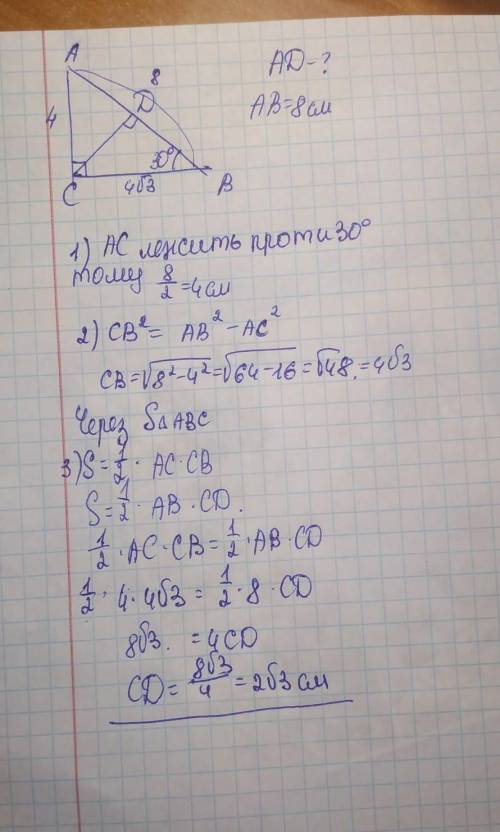 A
8
AD-?
D
AB=8см
4
30°
C
4√3
B
1) AC лежить проти 30°
тому 8/2 =4см
2) CB² = AB² - AC²
CB=√8²-4²=√64-16=√48.=4√3
Через S△ABC
3) S=1/2 · AC·CB
S=1/2 · AB · CD.
1/2 · AC · CB = 1/2 · AB · CD
1/2 · 4 · 4√3 = 1/2 · 8 · CD
8√3. = 4CD
CD = 8√3/4 = 2√3 см